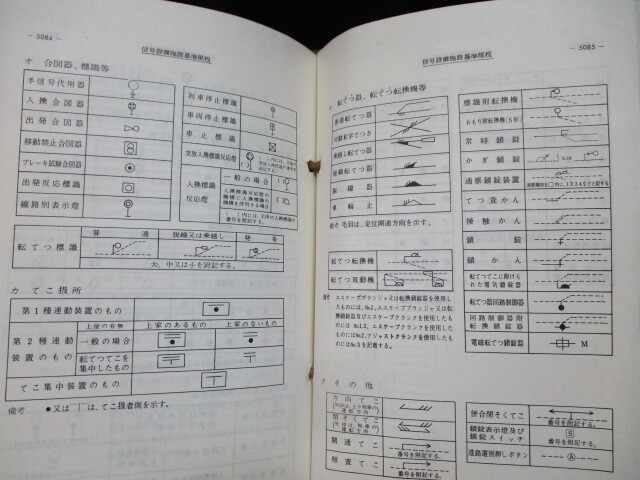 — 5084 —
信号設備施設基準規程
オ 合図器、標識等
手信号代用器
入換合図器
出発合図器
移動禁止合図器
ブレーキ試験合図器
出発反応標識
線路別表示灯
列車停止標識
車両停止標識
車止標識
突放入換標識反応燈
入換標識
反応燈
一般の場合
転てつ標識
普通
脱線又は乗越し
発条
大、中又は小を附記する。
カ てこ扱所
第1種連動装置のもの
第2種連動
装置のもの
上屋の有無
上家のあるもの
上家のないもの
一般の場合
転てつてこを
集中したもの
てこ集中装置のもの
備考 ●又は|は、てこ扱者側を示す。
信号設備施設基準規程
— 5085 —
転てつ器、転てつ転換機等
普通転てつ器
可動K字てつさ
乗越し転てつ器
脱線転てつ器
脱線器
車輪止
備考 毛羽は、定位開通方向を示す。
転てつ転換機
転てつ双動機
備考 エスケープクランク又は転換鎖錠器を使用し
たものには、No.1、エスケープクランク又は転
換鎖錠器及びエスケープクランクを使用したも
のにはNo.1.2、エスケープクランクを使用した
ものにNo.2、アジャストクランクを使用したも
のにはNo.3を記載する。
標識附転換機
おもり附転換機(S形)
常時鎖錠
かぎ鎖錠
通票鎖錠装置
てつ査かん
接触かん
鎖錠
鎖かん
転てつてこに附けら
れた電気鎖錠器
転てつ器回路制御器
回路制御器附
転換鎖錠器
電磁転てつ鎖錠器
M
ク その他
方向てこ
開そくてこ
開通てこ
番号を附記する。
照査てこ
番号を附記する。
併合閉そくてこ
番号を附記する。
鎖錠表示燈及び
鎖錠スイッチ
S
番号を附記する。
進路選別押しボタン
A